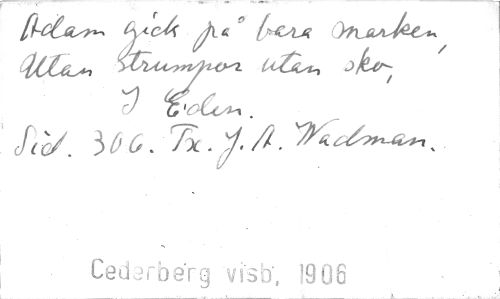 Adam gick på bara marken,
Utan strumpor utan sko,
I Eden.
Sid. 306. Tx. J. A. Wadman.
Cederberg visb, 1906